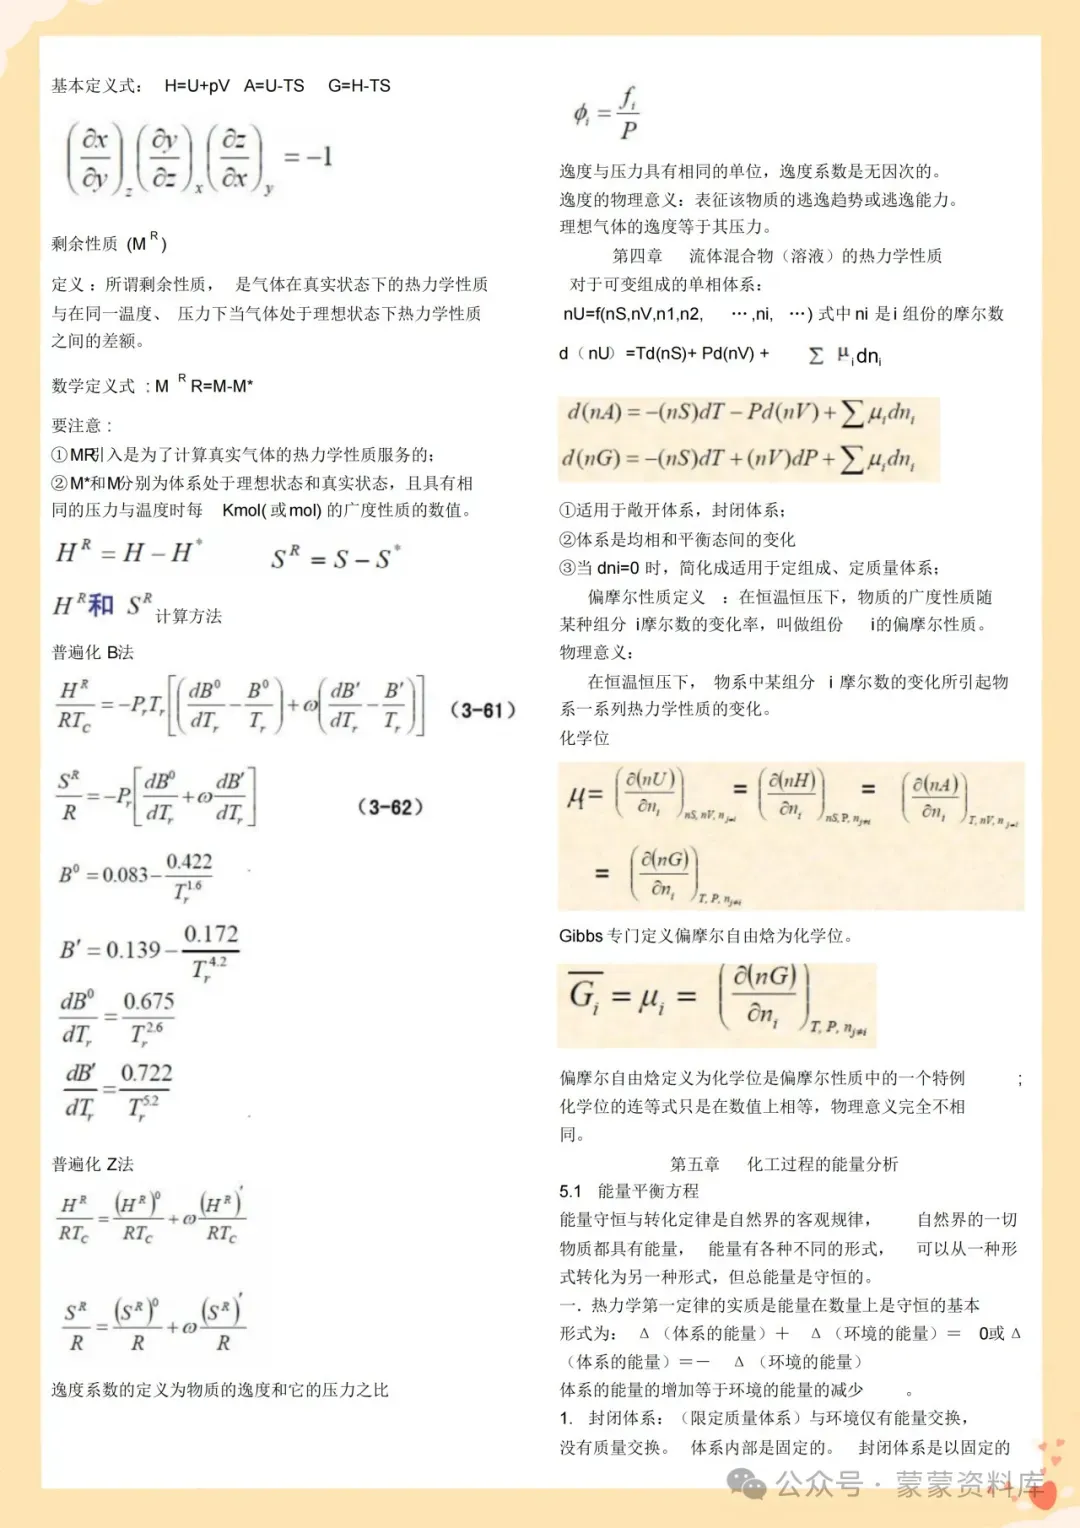 基本定义式： H=U+pV A=U-TS G=H-TS
(∂x/∂y)_z (∂y/∂z)_x (∂z/∂x)_y = -1
剩余性质 (M^R)
定义：所谓剩余性质， 是气体在真实状态下的热力学性质
与在同一温度、 压力下当气体处于理想状态下热力学性质
之间的差额。
数学定义式 : M^R R=M-M*
要注意：
①MR引入是为了计算真实气体的热力学性质服务的；
②M*和M分别为体系处于理想状态和真实状态，且具有相
同的压力与温度时每 Kmol(或mol) 的广度性质的数值。
H^R = H - H^* S^R = S - S^*
H^R和 S^R 计算方法
普遍化 B法
H^R/RT_C = -P_r T_r [(dB^0/dT_r - B^0/T_r) + ω(dB'/dT_r - B'/T_r)] (3-61)
S^R/R = -P_r [dB^0/dT_r + ω dB'/dT_r] (3-62)
B^0 = 0.083 - 0.422/T_r^1.6
B' = 0.139 - 0.172/T_r^4.2
dB^0/dT_r = 0.675/T_r^2.6
dB'/dT_r = 0.722/T_r^5.2
普遍化 Z法
H^R/RT_C = (H^R)^0/RT_C + ω (H^R)'/RT_C
S^R/R = (S^R)^0/R + ω (S^R)'/R
逸度系数的定义为物质的逸度和它的压力之比
ϕ_i = f_i/P
逸度与压力具有相同的单位，逸度系数是无因次的。
逸度的物理意义：表征该物质的逃逸趋势或逃逸能力。
理想气体的逸度等于其压力。
第四章 流体混合物（溶液）的热力学性质
对于可变组成的单相体系：
nU=f(nS,nV,n1,n2, … ,ni, …) 式中 ni 是 i 组份的摩尔数
d（nU）=Td(nS)+ Pd(nV) + ∑ μ_i dn_i
d(nA) = -(nS)dT - Pd(nV) + ∑ μ_i dn_i
d(nG) = -(nS)dT + (nV)dP + ∑ μ_i dn_i
①适用于敞开体系，封闭体系；
②体系是均相和平衡态间的变化
③当 dni=0 时，简化成适用于定组成、定质量体系；
偏摩尔性质定义 ：在恒温恒压下，物质的广度性质随
某种组分 i摩尔数的变化率，叫做组份 i的偏摩尔性质。
物理意义：
在恒温恒压下， 物系中某组分 i 摩尔数的变化所引起物
系一系列热力学性质的变化。
化学位
μ= (∂(nU)/∂n_i)_nS, nV, n_j≠i = (∂(nH)/∂n_i)_nS, P, n_j≠i = (∂(nA)/∂n_i)_T, nV, n_j≠i
= (∂(nG)/∂n_i)_T, P, n_j≠i
Gibbs 专门定义偏摩尔自由焓为化学位。
G̅_i = μ_i = (∂(nG)/∂n_i)_T, P, n_j≠i
偏摩尔自由焓定义为化学位是偏摩尔性质中的一个特例 ；
化学位的连等式只是在数值上相等，物理意义完全不相
同。
第五章 化工过程的能量分析
5.1 能量平衡方程
能量守恒与转化定律是自然界的客观规律， 自然界的一切
物质都具有能量， 能量有各种不同的形式， 可以从一种形
式转化为另一种形式，但总能量是守恒的。
一．热力学第一定律的实质是能量在数量上是守恒的基本
形式为： Δ（体系的能量）＋ Δ（环境的能量）＝ 0或 Δ
（体系的能量）＝－ Δ（环境的能量）
体系的能量的增加等于环境的能量的减少 。
1． 封闭体系：（限定质量体系）与环境仅有能量交换，
没有质量交换。 体系内部是固定的。 封闭体系是以固定的
公众号 · 蒙蒙资料库